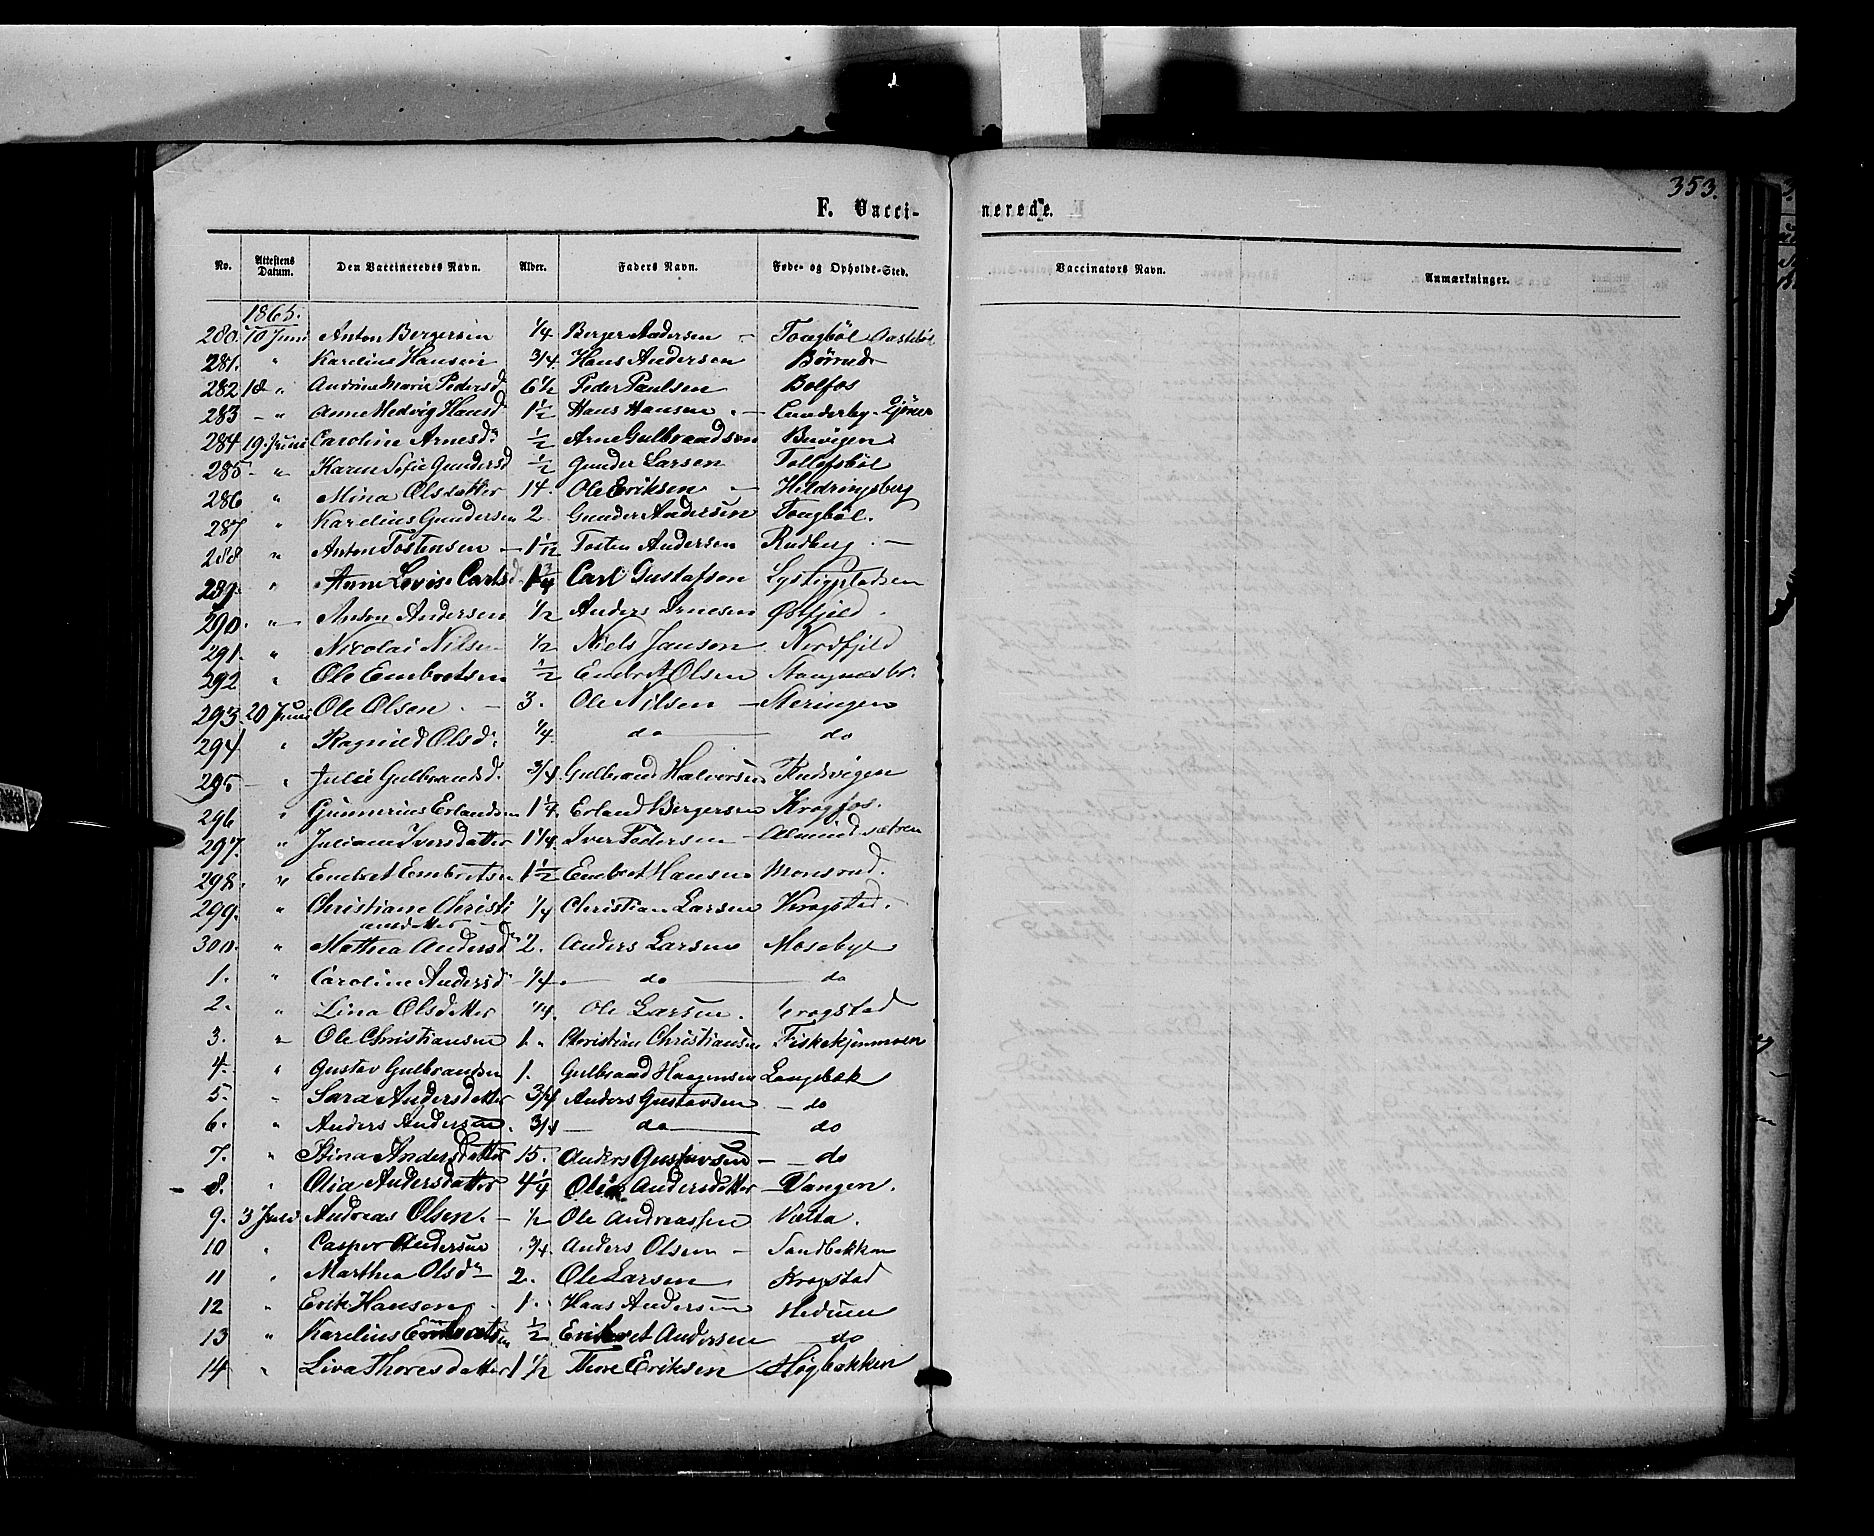 353.
F. Vacci- nerede.
No. Attestens Datum. Den Vaccineredes Navn. Alder. Faders Navn. Føde- og Opholds-Sted. Vaccinators Navn. Anmærkninger.
1865.
280. 10 Juni Anton Bergersen 1/4 Berger Andersen - Tongböl
281. " Karelius Hansen 3/4. Hans Andersen
282 18 " Andrine Marie Pedersd. 6 1/2 Peder Paulsen Bolfos
283 - " Anne Hedvig Hansd. 1 1/2 Hans Hansen. - Lunderby
284 19. Juni Caroline Arnesdr 1/2 Arne Gulbrandsen Buvigen
285 - " Karen Sofie Gundersd 1/2 Gunder Larsen Tollefsböl
286 " Mina Olsdatter 14. Ole Eriksen - Heldringsberg
287 " Karelius Gundersen 2. Gunder Andersen Tongböl.
288 " Anton Tostensen - 1 1/2 Tosten Andersen Rudberg. -
289. " Anne Lovise Carlsd. 1 3/4 Carl Gustafson Lystigpladsen
290. " Anton Andersen 1/2 Anders Arnesen Østfjeld.
291. " Nicolai Nilsen 1/2 Niels Jansen Nordfjeld
292 " Ole Embretsen 1/2 Embret Olsen Stangnæsbr.
293. 20 Juni Ole Olsen. - 3. Ole Nilsen - Steringen
294 " Ragnild Olsd. 1/4. do do
295 - " Julie Gulbrandsd. 3/4. Gulbrand Halvorsen
296 " Gunnerius Erlandsen 1 1/4. Erland Bergersen Krogfos.
297. " Juliane Iversdatter 1 1/4. Iver Pedersen - Almindsætren
298. " Embret Embretsen 1 1/2 Embret Hansen Monsrud.
299. " Christiane Christi 1/4 Christian Larsen Krogstad.
ansdatter
300. " Mathea Andersd. 2. Anders Larsen Mosebye
1. " Caroline Andersd - 1/4. do do
2. " Lina Olsdatter 1/4. Ole Larsen. Krogstad
3. " Ole Christiansen 1. " Christian Christiansen Fiskekjønmoen
4. " Gustav Gulbrandsen 1. Gulbrand Haagensen Langbæk
5. " Sara Andersdatter 3/4 Anders Gustavsen - do
6. " Anders Andersen. 3/4 do do
7. " Stina Andersdatter 15. Anders Gustavsen - do
8. " Olia Andersdatter 4 1/4 Olia Andersdatter - Vangen.
9. 3 Juli Andreas Olsen. - 1/2 Ole Andreassen Vælta.
10 " Casper Andersen 3/4. Anders Olsen - Sandbakken
11 " Marthea Olsdr 2. Ole Larsen Krogstad
12 " Erik Hansen. 1. Hans Andersen Hedum
13 " Karelius Embretsen 1/2 Embret Andersen do
14 " Liva Thoresdatter 1 1/2 Thore Eriksen Høgbakken